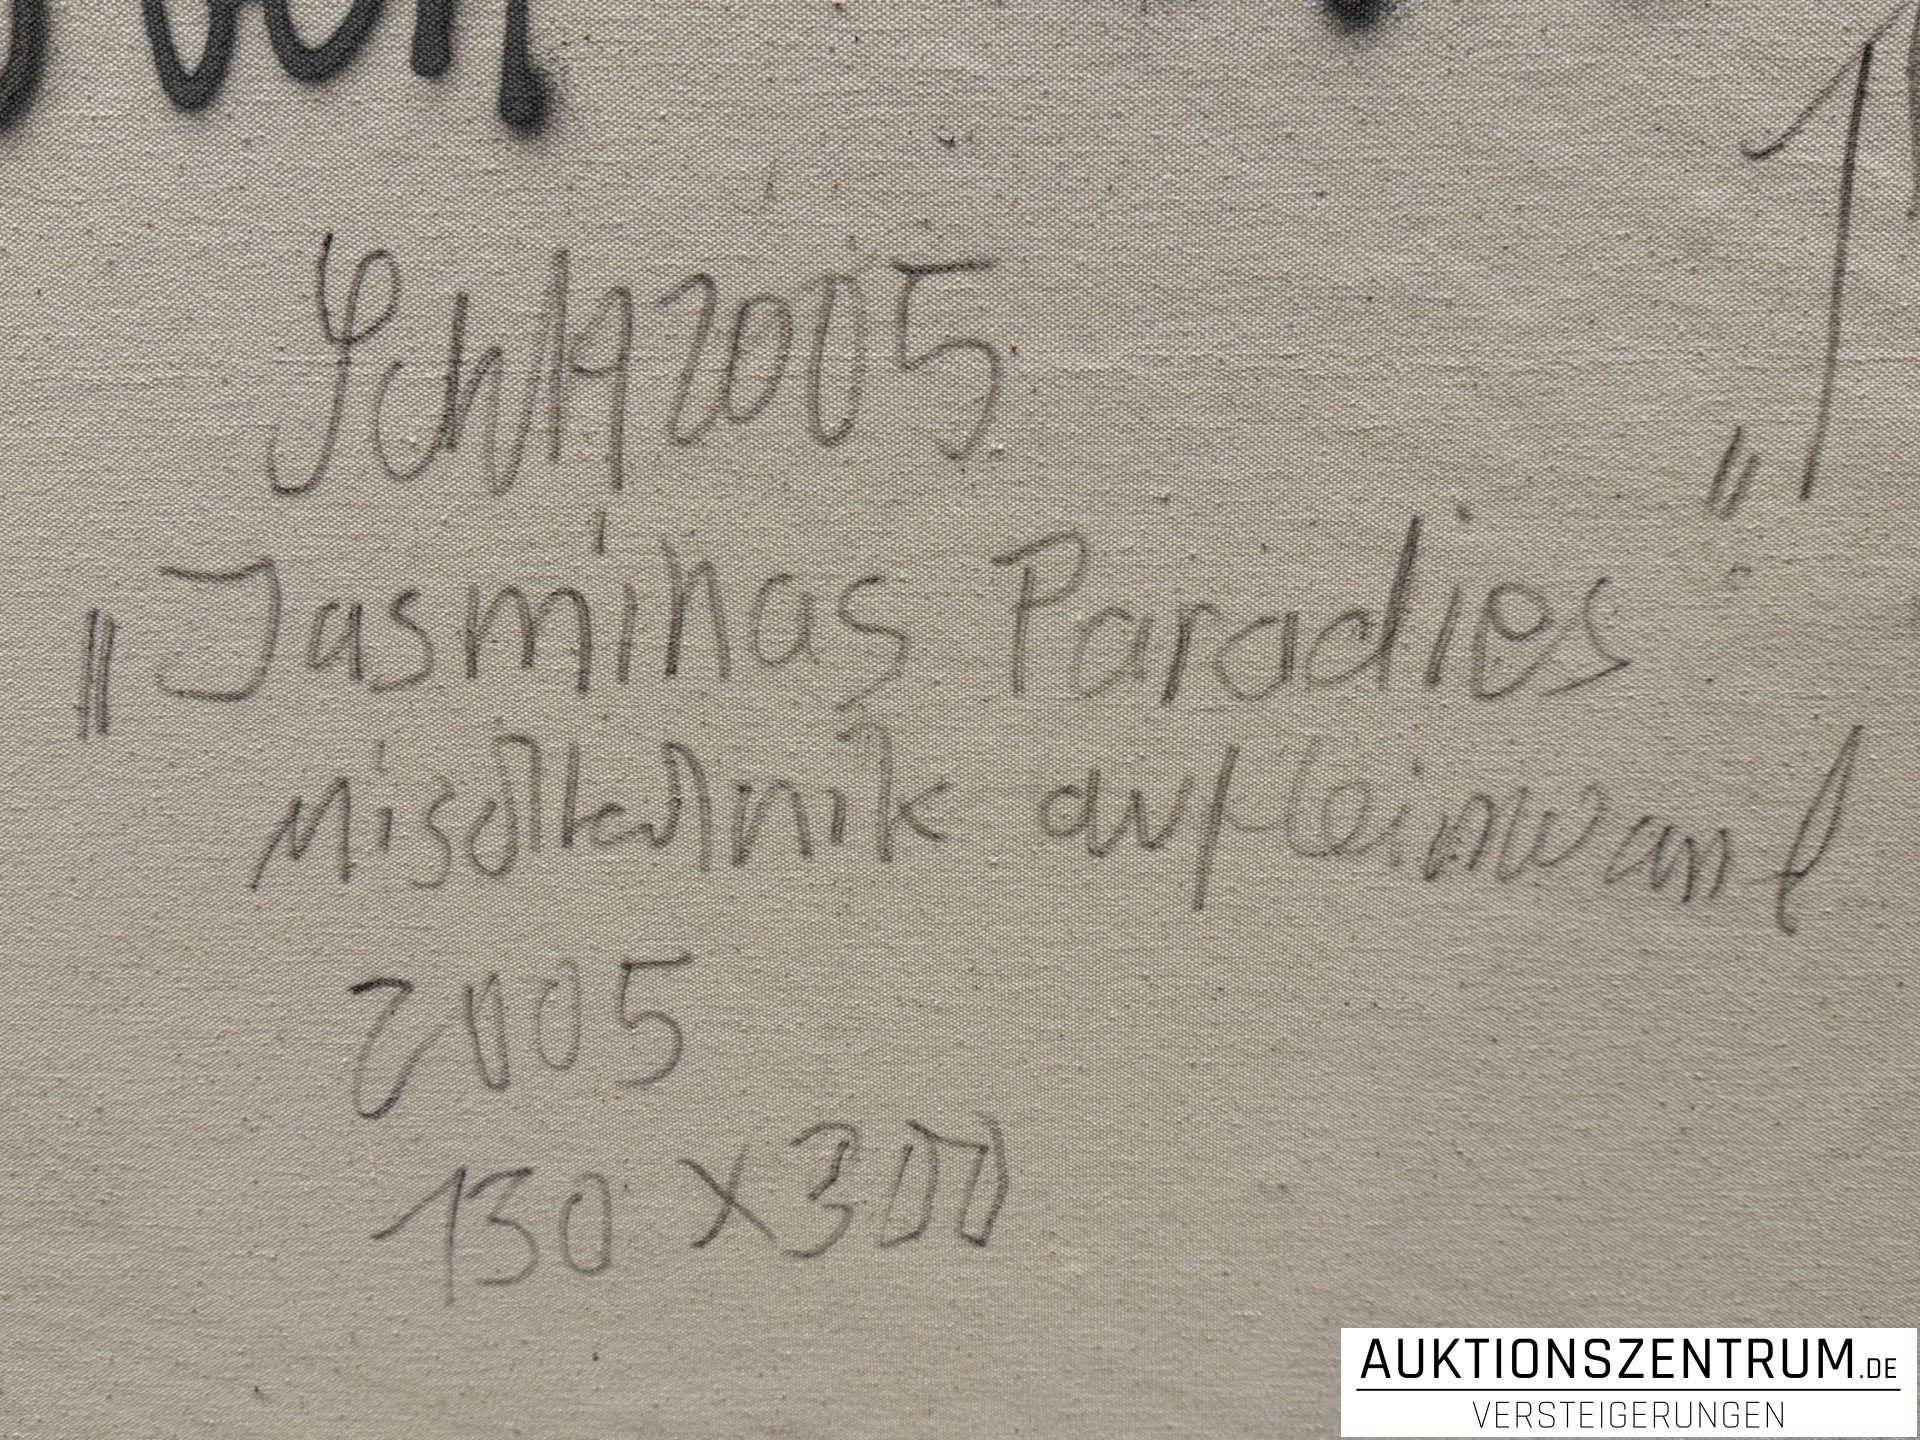 2005
„Jasminas Paradies"
Mischtechnik auf Leinwand
2005
130 x 300
AUKTIONSZENTRUM.DE
VERSTEIGERUNGEN